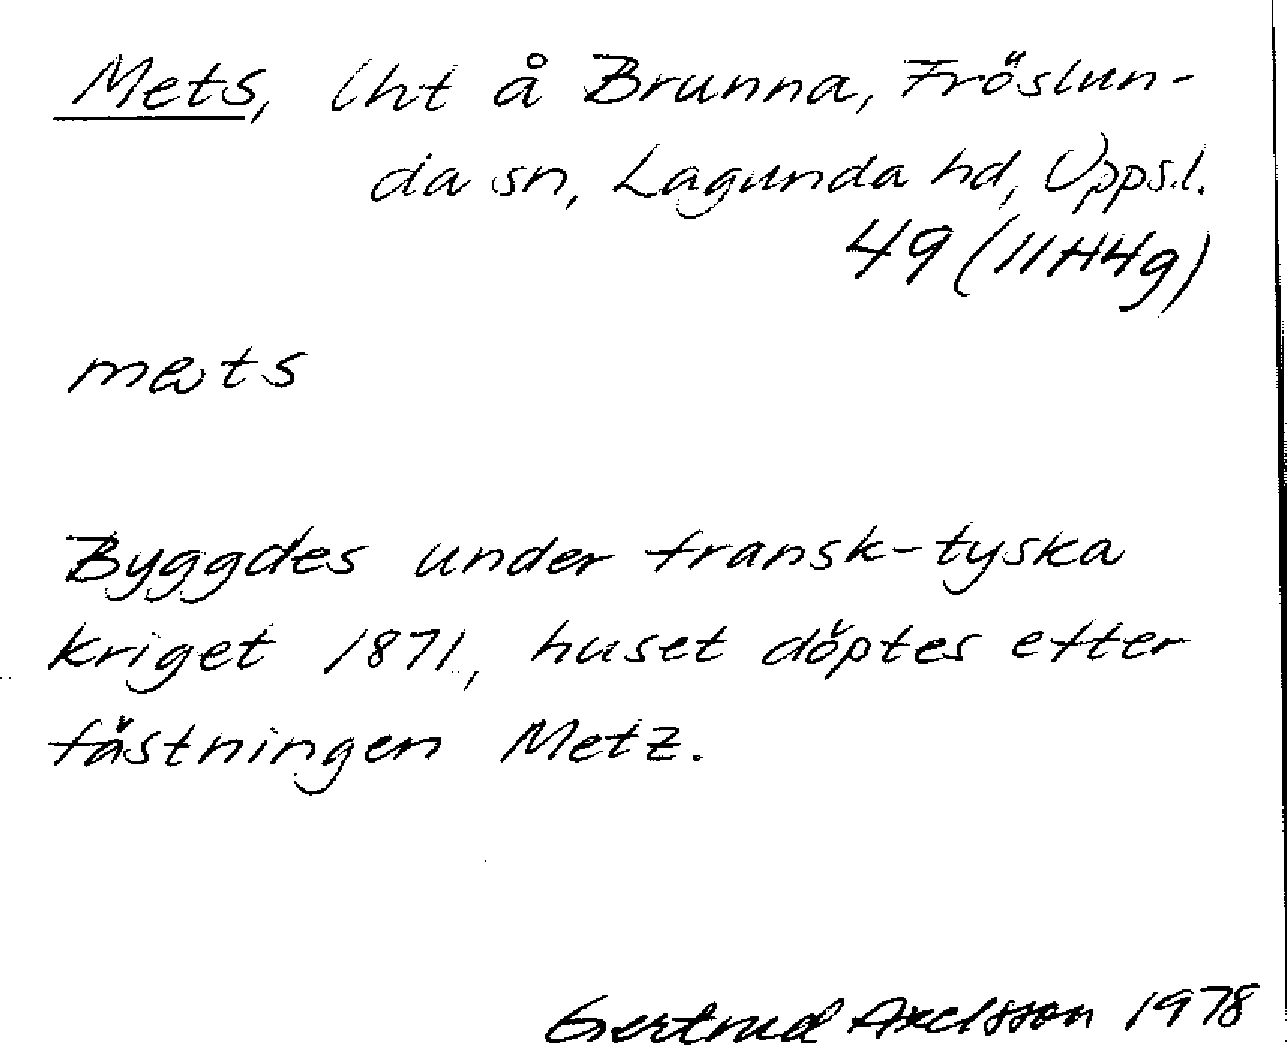 Mets, lht å Brunna, Fröslun-
da sn, Lagunda hd, Uppsl.
49 (11H4g)
mæts
Byggdes under fransk-tyska
kriget 1871, huset döptes efter
fästningen Metz.
Gertrud Axelsson 1978